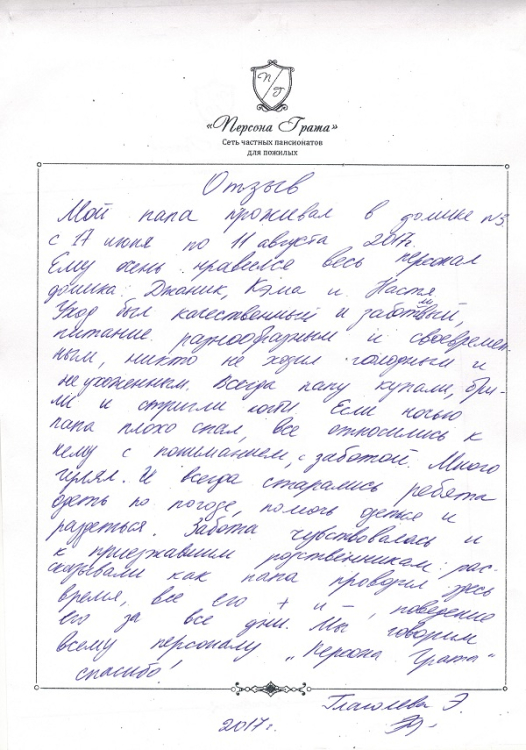 П Г
«Персона Грата»
Сеть частных пансионатов
для пожилых
Отзыв
Мой папа проживал в домике №3
с 17 июня по 11 августа 2017г.
Ему очень нравился весь персонал
домика: Джаник, Кэма и Настя.
Уход был качественный и заботливый,
питание разнообразным и своевремен-
ным, никто не ходил голодным и
неухоженным. Всегда папу купали, бри-
ли и стригли ногти. Если ночью
папа плохо спал, все относились к
нему с пониманием, с заботой. Много
гулял. И всегда старались ребята
одеть по погоде, помочь одеться и
раздеться. Забота чувствовалась и
к приезжавшим родственникам: рас-
сказывали как папа проводил здесь
время, все его + и –, поведение
его за все дни. Мы говорим
всему персоналу "Персона Грата"
спасибо!
Глаголева Э.
2017г.